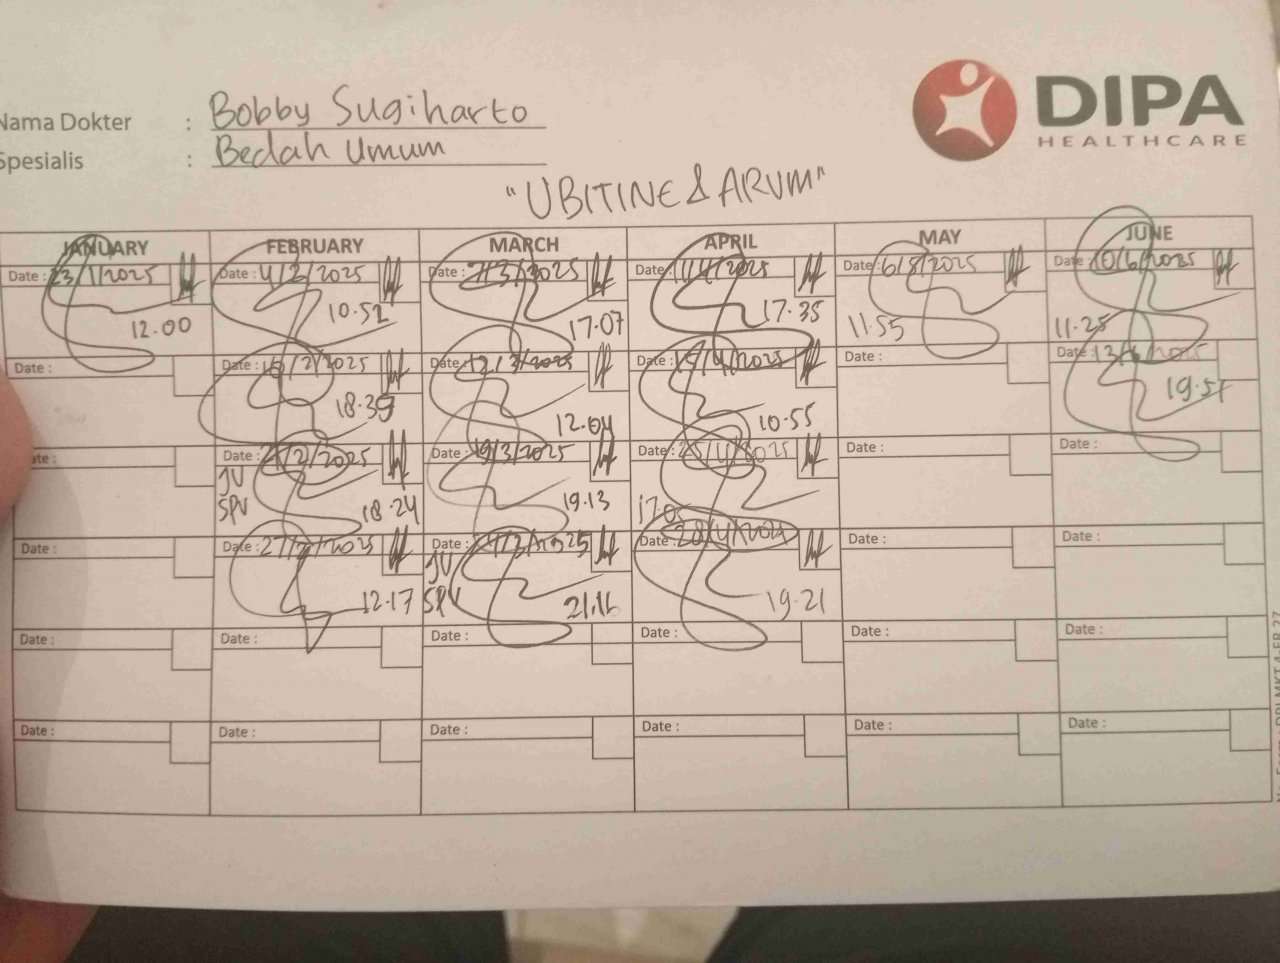 DIPA
HEALTHCARE
Nama Dokter : Bobby Sugiharto
Spesialis : Bedah Umum
"UBITINE & ARUM"
JANUARY FEBRUARY MARCH APRIL MAY JUNE
Date : 23/1/2025 Date : 4/2/2025 Date : 7/3/2025 Date : 11/4/2025 Date : 6/5/2025 Date : 10/6/2025
12.00 10.52 17.07 17.35 11.55 11.25
Date : Date : /2/2025 Date : 12/3/2025 Date : 15/4/2025 Date : Date : 13/
18.39 12.04 10.55 19.57
Date : Date : /2/2025 Date : 19/3/2025 Date : Date : Date :
JV
SPV 18.24 19.13
Date : Date : 27/ /2025 Date : Date : Date : Date :
JV
12.17 SPV 19.21
Date : Date : Date : Date : Date : Date :
Date : Date : Date : Date : Date : Date :